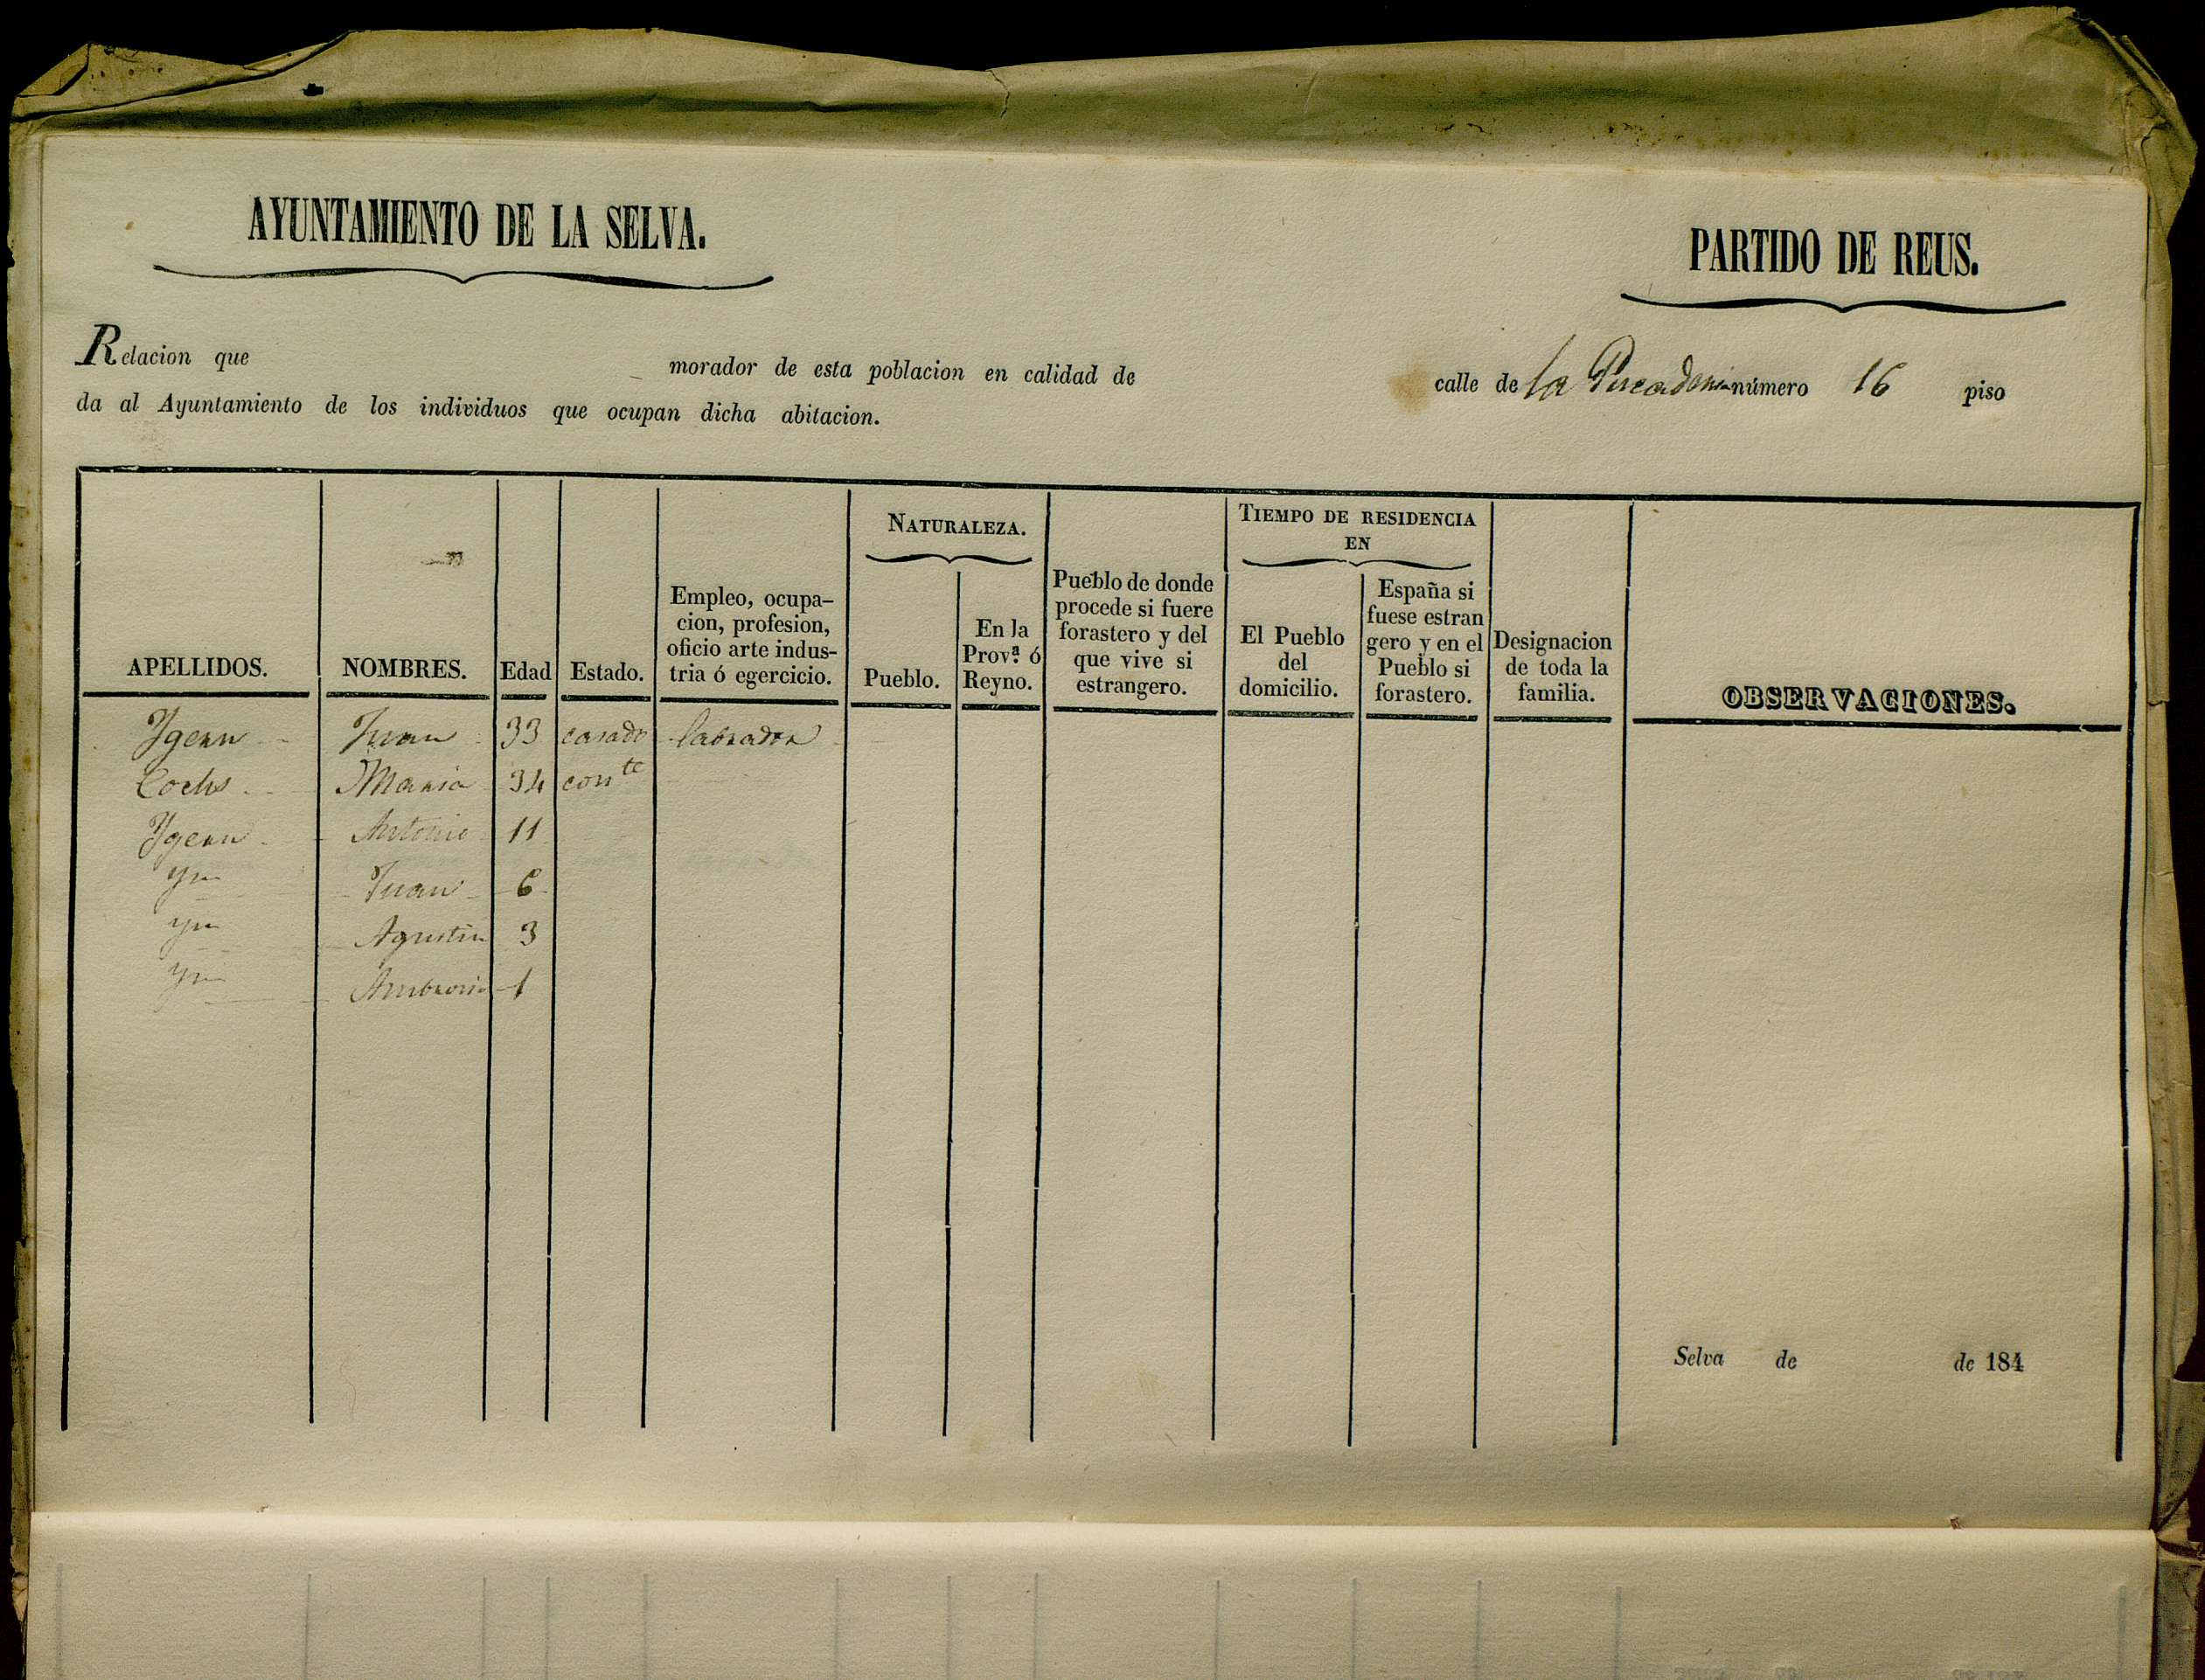 AYUNTAMIENTO DE LA SELVA.
PARTIDO DE REUS.
Relacion que morador de esta poblacion en calidad de calle de la número 16 piso
da al Ayuntamiento de los individuos que ocupan dicha abitacion.
NATURALEZA.
TIEMPO DE RESIDENCIA EN
APELLIDOS.
NOMBRES.
Edad
Estado.
Empleo, ocupa-
cion, profesion,
oficio arte indus-
tria ó egercicio.
Pueblo.
En la
Prov.ª ó
Reyno.
Pueblo de donde
procede si fuere
forastero y del
que vive si
estrangero.
El Pueblo
del
domicilio.
España si
fuese estran
gero y en el
Pueblo si
forastero.
Designacion
de toda la
familia.
OBSERVACIONES.
Ygern Juan 33 casado labrador
Cochs Maria 34 con.te
Ygern Antonio 11
Yn Juan 6
yn Agustin 3
yn Ambrosio 1
Selva de de 184